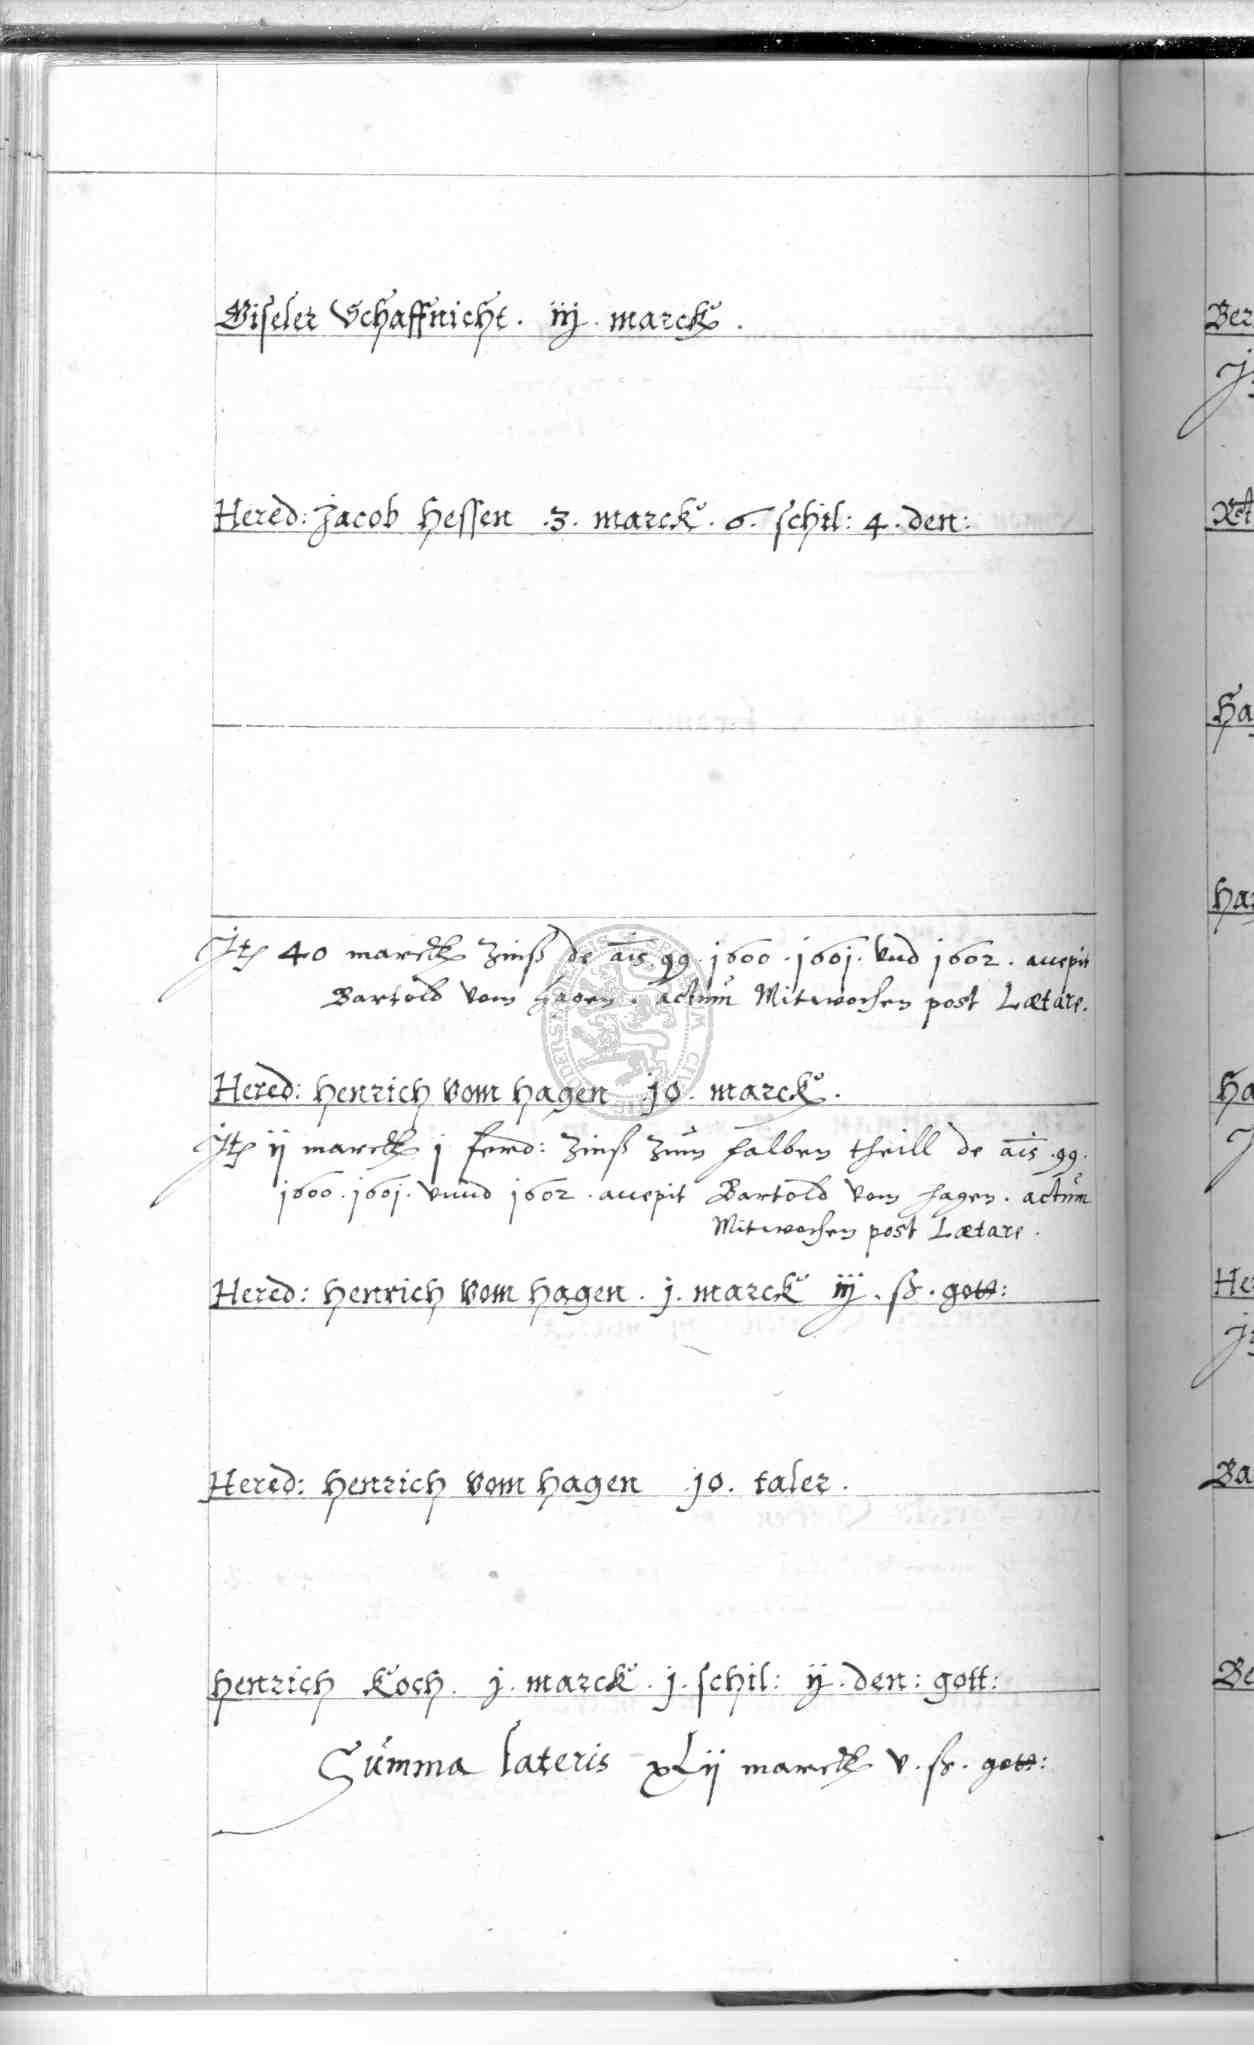 Giseler Schaffnicht. iij. marck.
Hered: Jacob Hessen .3. marck. 6. schil: 4. den:
Jtem 40 marck zinß de ais 99. 1600. 1601. vnd 1602. accepit
Bartold vom Hagen. actum Mitwochen post Lætare.
Hered: Henrich vom Hagen 10. marck.
Jtem ij marck j ferd: zinß zum halben theill de ais .99.
1600. 1601. vnnd 1602. accepit Bartold vom Hagen. actum
Mitwochen post Lætare.
Hered: Henrich vom Hagen. j. marck iij. ß. gott:
Hered: Henrich vom Hagen 10. taler.
Henrich Koch. j. marck. j. schil: ij. den: gott:
Summa lateris xLij marck v. ß. gott:
Ber
Ha
Har
Ha
Her
Ba
Be